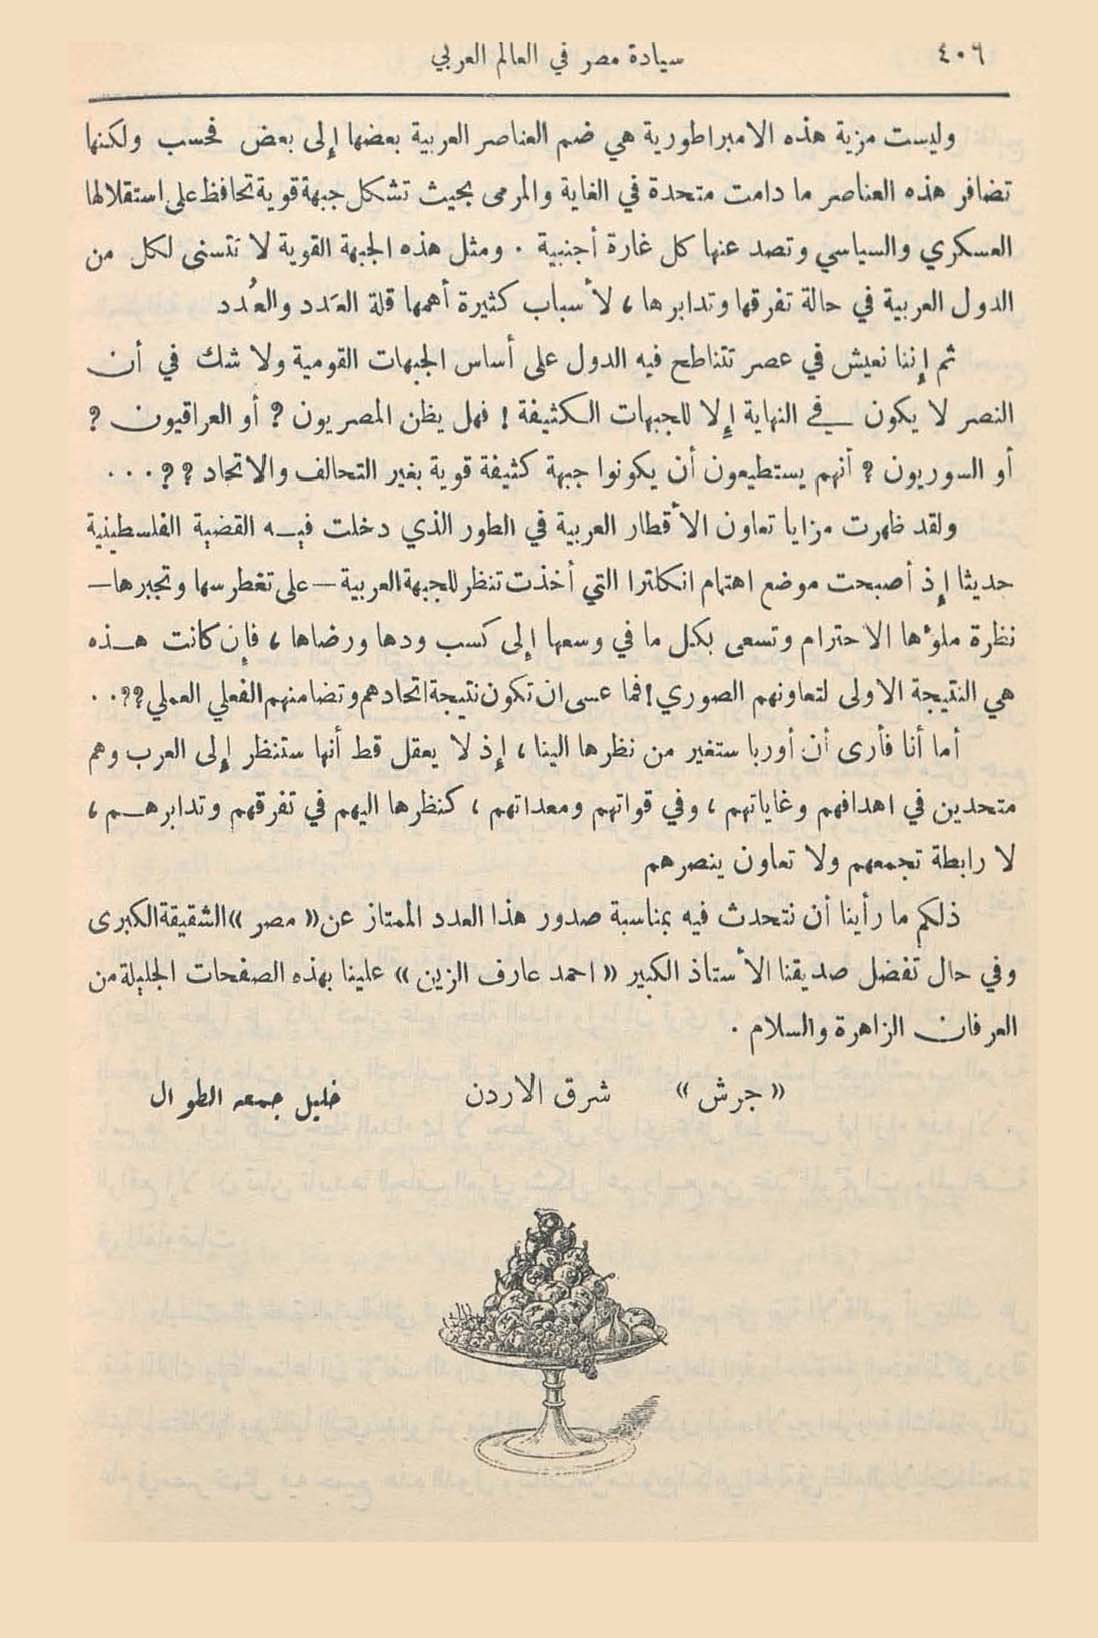 ٤٠٦ سيادة مصر في العالم العربي
وليست مزية هذه الامبراطورية هي ضم العناصر العربية بعضها إلى بعض فحسب ولكنها
تضافر هذه العناصر ما دامت متحدة في الغاية والمرمى بحيث تشكل جبهة قوية تحافظ على استقلالها
العسكري والسياسي وتصد عنها كل غارة أجنبية . ومثل هذه الجبهة القوية لا تتسنى لكل من
الدول العربية في حالة تفرقها وتدابرها ، لأسباب كثيرة أهمها قلة العَدد والعُدد
ثم إننا نعيش في عصر تتناطح فيه الدول على أساس الجبهات القومية ولا شك في أن
النصر لا يكون في النهاية إلا للجبهات الكثيفة ! فهل يظن المصريون ? أو العراقيون ?
أو السوريون ? أنهم يستطيعون أن يكونوا جبهة كثيفة قوية بغير التحالف والاتحاد ? ? . . .
ولقد ظهرت مزايا تعاون الأقطار العربية في الطور الذي دخلت فيه القضية الفلسطينية
حديثا إذ أصبحت موضع اهتمام انكلترا التي أخذت تنظر للجبهة العربية – على تغطرسها وتجبرها –
نظرة ملؤها الاحترام وتسعى بكل ما في وسعها إلى كسب ودها ورضاها ، فإن كانت هذه
هي النتيجة الاولى لتعاونهم الصوري ! فما عسى ان تكون نتيجة اتحادهم وتضامنهم الفعلي العملي ? ? . .
أما أنا فأرى أن أوربا ستغير من نظرها الينا ، إذ لا يعقل قط أنها ستنظر إلى العرب وهم
متحدين في اهدافهم وغاياتهم ، وفي قواتهم ومعداتهم ، كنظرها اليهم في تفرقهم وتدابرهم ،
لا رابطة تجمعهم ولا تعاون ينصرهم
ذلكم ما رأينا أن نتحدث فيه بمناسبة صدور هذا العدد الممتاز عن « مصر » الشقيقة الكبرى
وفي حال تفضل صديقنا الأستاذ الكبير « احمد عارف الزين » علينا بهذه الصفحات الجليلة من
العرفان الزاهرة والسلام .
« جرش » شرق الاردن خليل جمعه الطوال